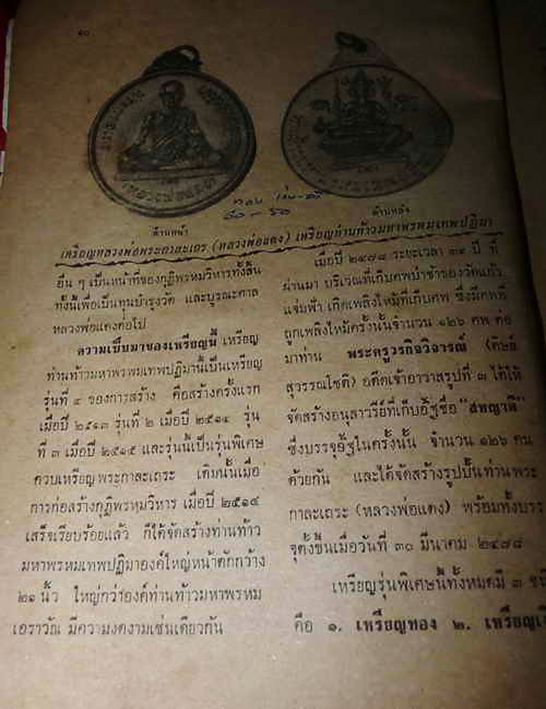 ๑๐
ด้านหน้า
ด้านหลัง
๔๐ – ๕๐
เหรียญหลวงพ่อพระกาละเถร (หลวงพ่อแดง) เหรียญท่านท้าวมหาพรหมเทพปฏิมา
อื่น ๆ เป็นหน้าที่ของกุฏิพรหมวิหารทั้งสิ้น
ทั้งนี้เพื่อเป็นทุนบำรุงวัด และบูรณะศาล
หลวงพ่อแดงต่อไป
ความเป็นมาของเหรียญนี้ เหรียญ
ท่านท้าวมหาพรหมเทพปฏิมานี้เป็นเหรียญ
รุ่นที่ ๔ ของการสร้าง คือสร้างครั้งแรก
เมื่อปี ๒๕๑๓ รุ่นที่ ๒ เมื่อปี ๒๕๑๔ รุ่น
ที่ ๓ เมื่อปี ๒๕๑๕ และรุ่นนี้เป็นรุ่นพิเศษ
ควบเหรียญพระกาละเถระ เดิมนั้นเมื่อ
การก่อสร้างกุฏิพรหมวิหาร เมื่อปี ๒๕๑๔
เสร็จเรียบร้อยแล้ว ก็ได้จัดสร้างท่านท้าว
มหาพรหมเทพปฏิมาองค์ใหญ่หน้าตักกว้าง
๒๑ นิ้ว ใหญ่กว่าองค์ท่านท้าวมหาพรหม
เอราวัณ มีความงดงามเช่นเดียวกัน
เมื่อปี ๒๔๗๘ ระยะเวลา ๓๙ ปี ที่
ผ่านมา บริเวณที่เก็บศพป่าช้าของวัดแก้ว
แจ่มฟ้า เกิดเพลิงไหม้ที่เก็บศพ ซึ่งมีศพที่
ถูกเพลิงไหม้ครั้งนั้นจำนวน ๑๒๖ ศพ ต่อ
มาท่าน พระครูวรกิจวิจารณ์ (ดิษย์
สุวรรณโชติ) อดีตเจ้าอาวาสรูปที่ ๗ ได้ให้
จัดสร้างอนุสาวรีย์ที่เก็บอัฐิชื่อ "สหญาติ"
ซึ่งบรรจุอัฐิในครั้งนั้น จำนวน ๑๒๖ คน
ด้วยกัน และได้จัดสร้างรูปปั้นท่านพระ
กาละเถระ (หลวงพ่อแดง) พร้อมทั้งบรร
จุตั้งขึ้นเมื่อวันที่ ๓๐ มีนาคม ๒๔๗๘
เหรียญรุ่นพิเศษนี้ทั้งหมดมี ๓ ชนิ
คือ ๑. เหรียญทอง ๒. เหรียญเ